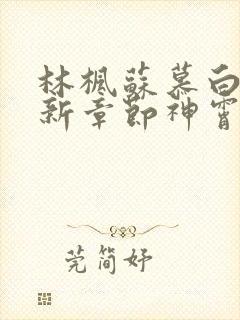 林楓蘇慕白
新章節神霄
莞簡妤